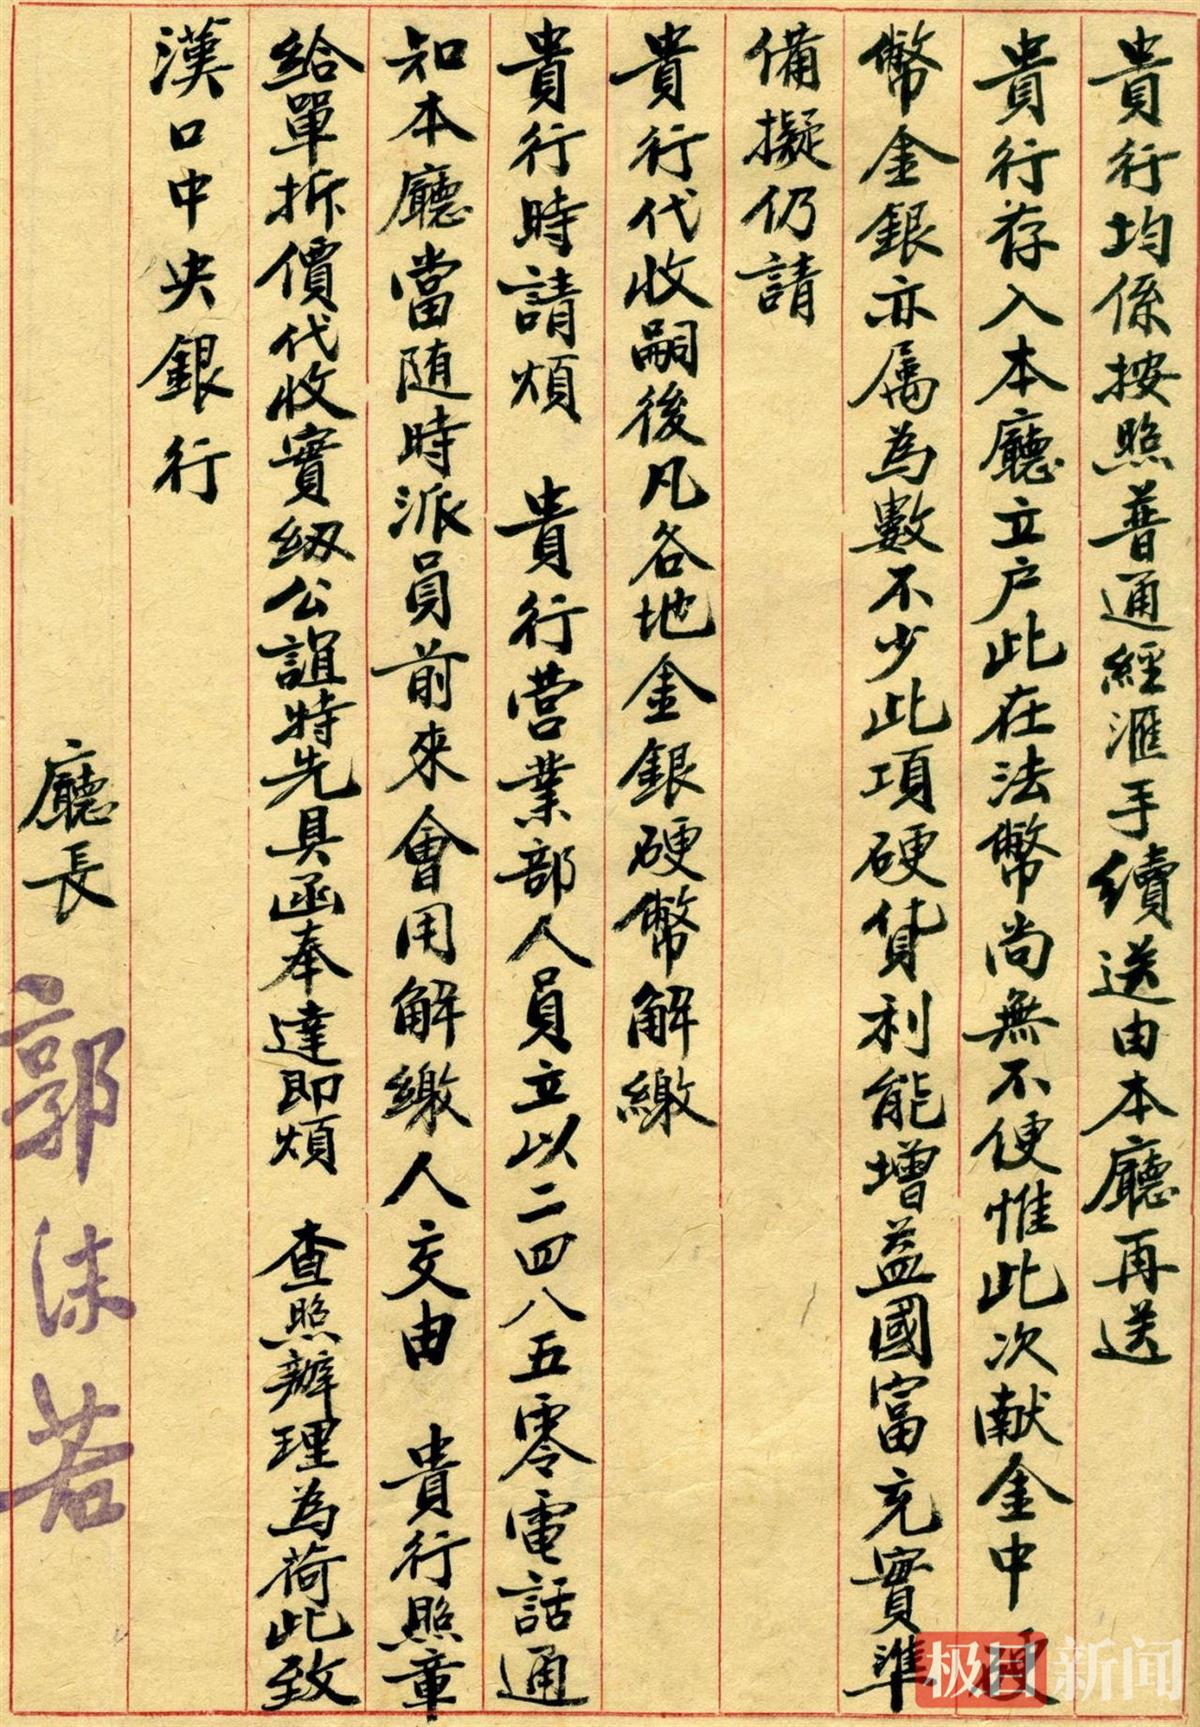 貴行均係按照普通經滙手續送由本廳再送
貴行存入本廳立户此在法幣尚無不便惟此次献金中硬
幣金銀亦属為數不少此項硬貨利能增益國富充實準
備擬仍請
貴行代收嗣後凡各地金銀硬幣解繳
貴行時請煩 貴行营業部人員立以二四八五零電話通
知本廳當随時派員前來會用解繳人交由 貴行照章
給單拆價代收實紉公誼特先具函奉達即煩 查照辦理為荷此致
漢口中央銀行
廳長 郭沫若
极目新闻